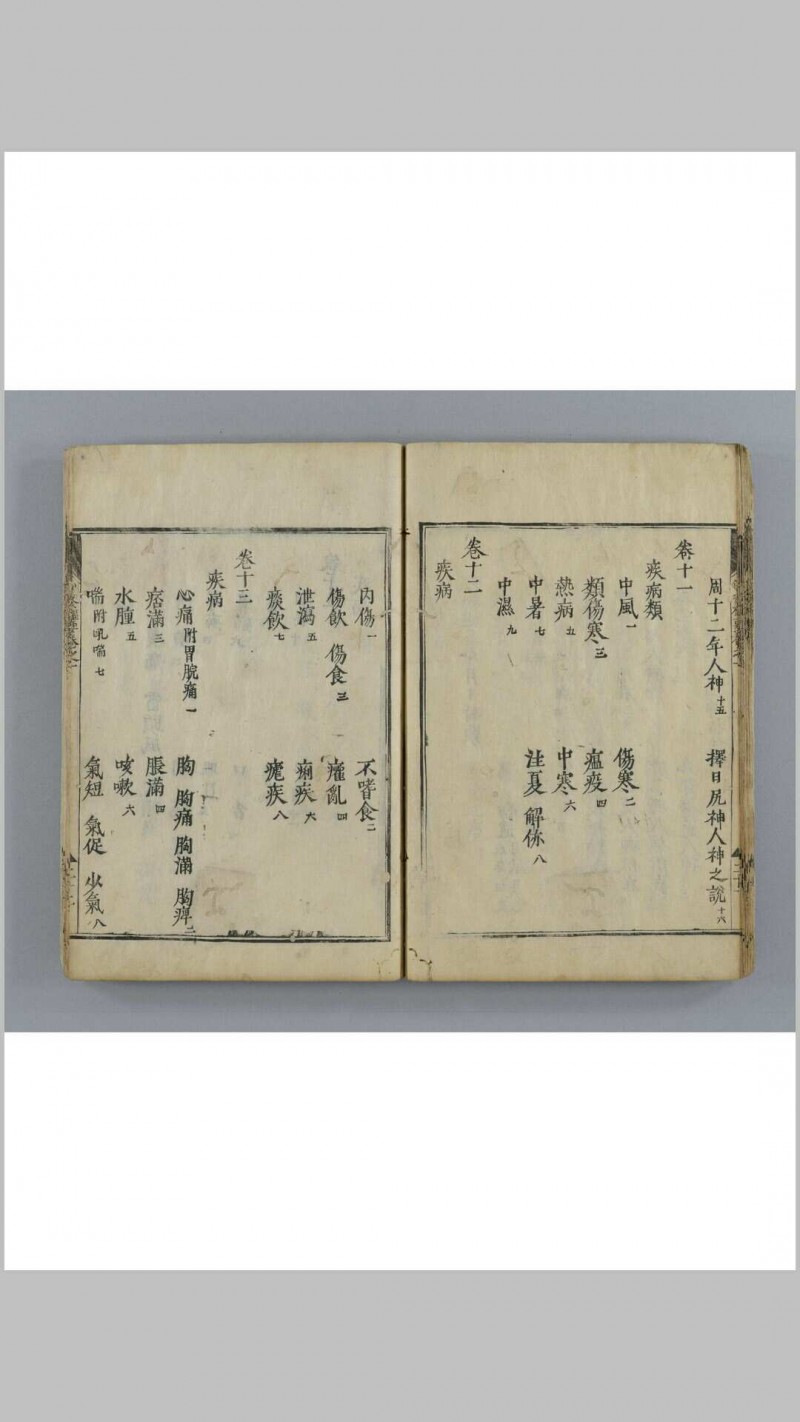 周十二年人神十五 擇日尻神人神之說十六
卷十一
疾病類
中風一 傷寒二
類傷寒三 瘟疫四
熱病五 中寒六
中暑七 注夏 解㑊八
中濕九
卷十二
疾病
內傷一 不嗜食二
傷飲 傷食三 癨亂四
泄瀉五 痢疾六
痰飲七 瘧疾八
卷十三
疾病
心痛附胃脘痛一 胸 胸痛 胸滿 胸痹二
痞滿三 脹滿四
水腫五 咳嗽六
喘附吼喘七 氣短 氣促 少氣八